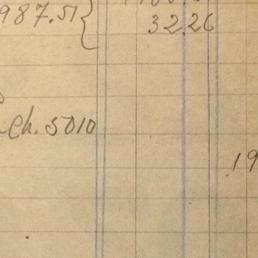 987.51
32.26
Ch. 5010
19